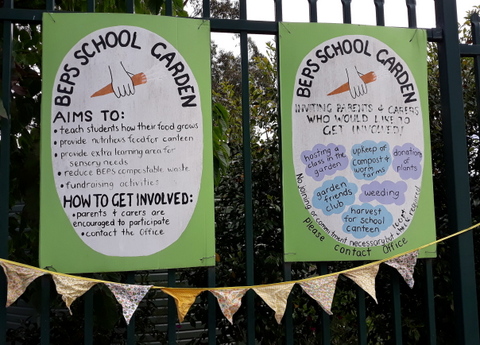 BEPS SCHOOL GARDEN
AIMS TO:
• teach students how their food grows
• provide nutritious food for canteen
• provide extra learning area for
sensory needs
• reduce BEPS compostable waste
• fundraising activities
HOW TO GET INVOLVED:
• parents & carers are
encouraged to participate
• contact the Office
BEPS SCHOOL GARDEN
INVITING PARENTS & CARERS
WHO WOULD LIKE TO
GET INVOLVED!
hosting a
class in the
garden
upkeep of
compost &
worm
farms
donations
of plants
garden
friends
club
weeding
harvest for
school
canteen
No joining or commitment necessary
please contact Office